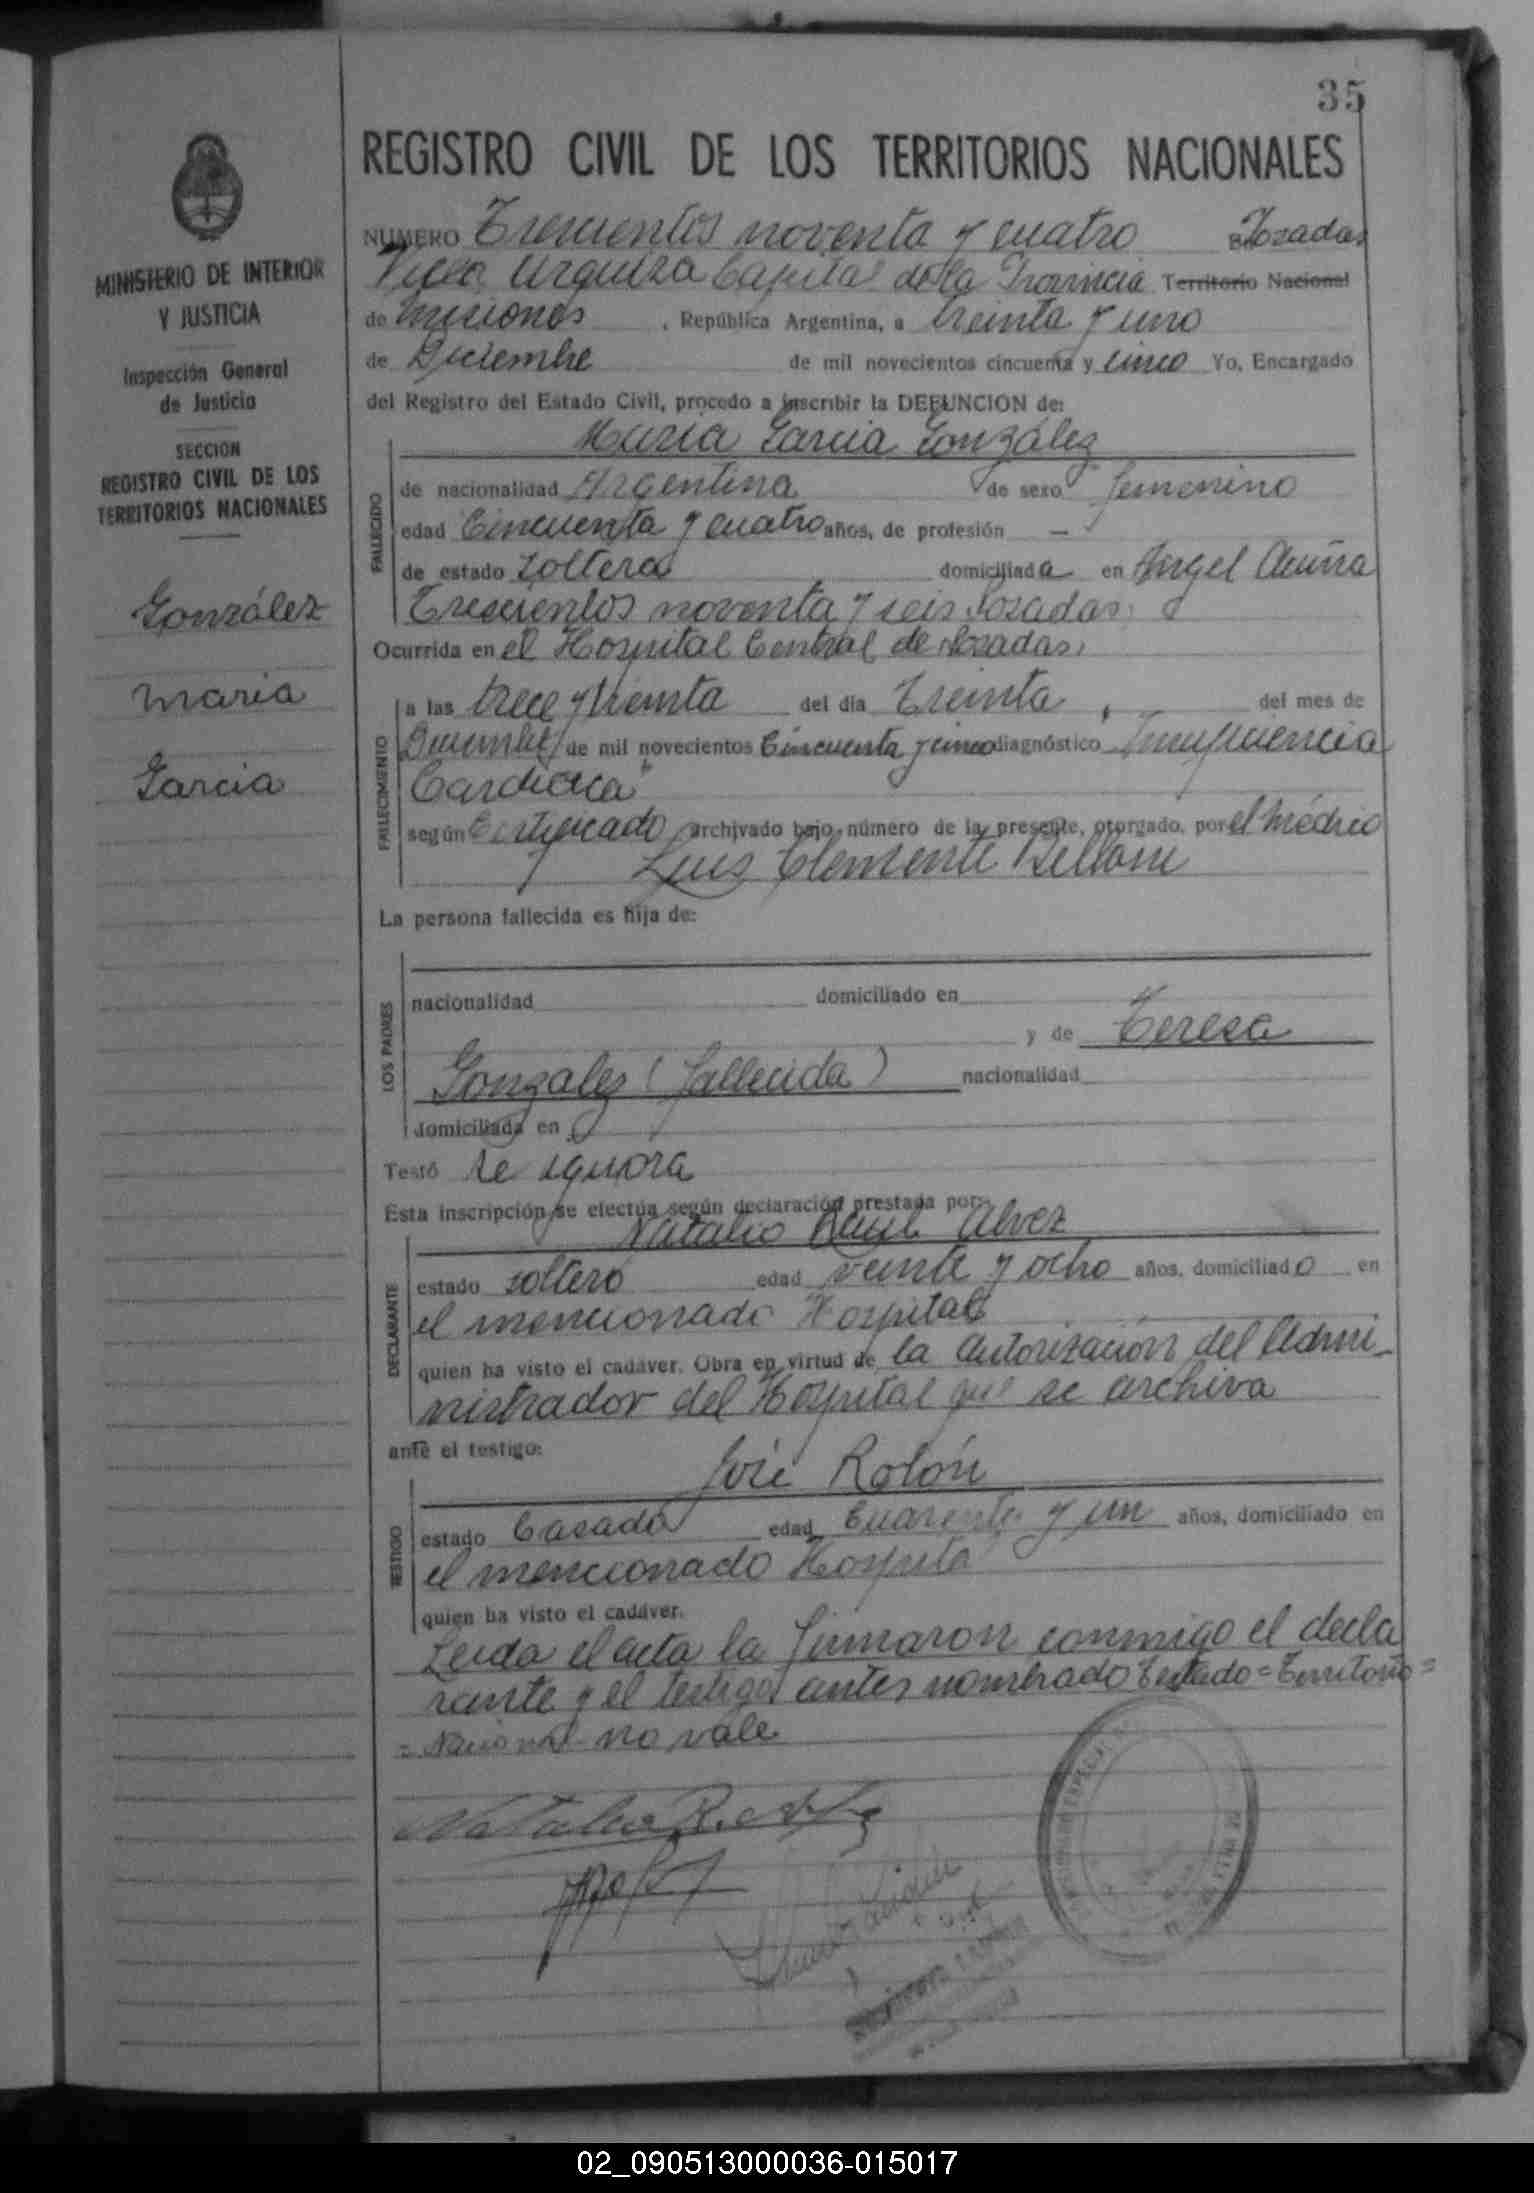 35
REGISTRO CIVIL DE LOS TERRITORIOS NACIONALES
MINISTERIO DE INTERIOR
Y JUSTICIA
Inspección General
de Justicia
SECCION
REGISTRO CIVIL DE LOS
TERRITORIOS NACIONALES
González
Maria
Garcia
NUMERO Trescientos noventa y cuatro Posadas
Villa Urquiza Capital de la Provincia Territorio Nacional
de Misiones, República Argentina, a treinta y uno
de Diciembre de mil novecientos cincuenta y cinco Yo, Encargado
del Registro del Estado Civil, procedo a inscribir la DEFUNCION de:
Maria Garcia González
FALLECIDO
de nacionalidad Argentina de sexo femenino
edad Cincuenta y cuatro años, de profesión —
de estado soltera domiciliada en Angel Acuña
Trescientos noventa y seis Posadas.
Ocurrida en el Hospital Central de Posadas,
FALLECIMIENTO
a las trece y treinta del dia Treinta, del mes de
Diciembre de mil novecientos Cincuenta y cinco diagnóstico "Insuficiencia
Cardiaca"
según Certificado archivado bajo número de la presente, otorgado, por el médico
Luis Clemente Belloni
La persona fallecida es hija de:
LOS PADRES
nacionalidad domiciliado en
y de Teresa
Gonzalez (fallecida) nacionalidad
domiciliada en
Testó se ignora
Esta inscripción se efectúa según declaración prestada por:
Natalio Raul Alvez
DECLARANTE
estado soltero edad veinte y ocho años, domiciliado en
el mencionado Hospital
quien ha visto el cadáver. Obra en virtud de la autorización del Admi-
nistrador del Hospital que se archiva
ante el testigo:
José Rolón
TESTIGO
estado Casado edad Cuarenta y un años, domiciliado en
el mencionado Hospital
quien ha visto el cadáver.
Leida el acta la firmaron conmigo el decla
rante y el testigo antes nombrado Testado=Territorio=
=Nacional- no vale
Natalio R. Alvez
02_090513000036-015017